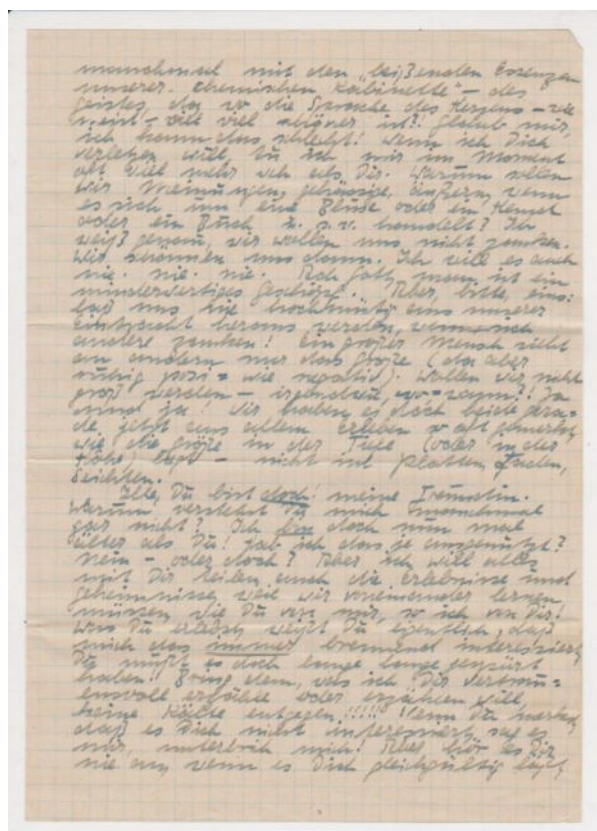 manchmal mit den „beißenden Essenzen
unserer chemischen Kabinette" – des
Geistes, da wo die Sprache des Herzens – wie
– viel schöner ist?! Glaub mir,
ich kann das schlecht! Wenn ich Dich
verletzen will, tu ich mir im Moment
oft viel mehr weh als Dir. Warum sollen
wir Meinungen, gehässige, äußern, wenn
es sich um eine Bluse oder ein Hemd
oder ein Buch u. s. w. handelt? Ich
weiß genau, wir wollen uns nicht zanken.
Wir schämen uns dann. Ich will es auch
nie. nie. nie. Ach Gott, man ist ein
minderwertiges Geschöpf. Aber, bitte, eins:
laß uns nie hochmütig aus unserer
Eintracht heraus werden, wenn sich
andere zanken! Ein großer Mensch sieht
am andern nur das Große (da aber
ruhig posi- wie negativ). Wollen wir nicht
groß werden – irgendwie, Ja
und ja! Wir haben es doch beide gera-
de jetzt aus allem Erleben so oft gemerkt,
wie die Größe in der Tiefe (oder in der
Höhe) liegt – nicht im Platten, Faden,
Seichten.
Du bist doch! meine
Warum verstehst Du mich manchmal
gar nicht? Ich bin doch nun mal
älter als Du! Hab ich das je ausgenützt?
Nein – oder doch? Aber ich will alles
mit Dir teilen, auch die Erlebnisse und
Geheimnisse, weil wir voneinander lernen
müssen, wie Du von mir, so ich von Dir!
Was Du erlebst, weißt Du eigentlich, daß
mich das immer brennend interessiert,
Du mußt es doch lange lange gespürt
haben! Bring dem, was ich Dir vertrau-
ensvoll erzähle oder erzählen will,
keine Kälte entgegen!!!!!! Wenn Du merkst,
daß es Dich nicht interessiert, sag es
mir, unterbrich mich! Aber hör es Dir
nie an, wenn es Dich gleichgültig läßt,